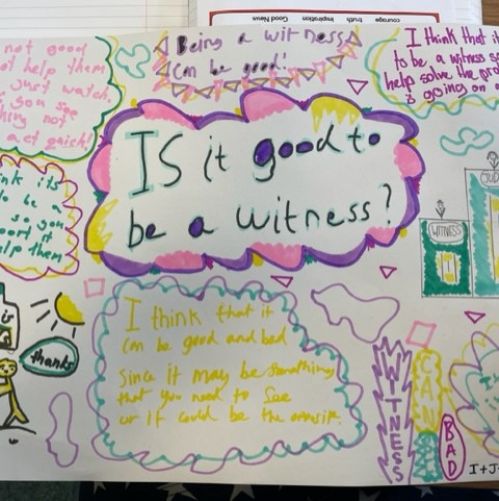 courage truth inspiration Good News
not good
not help them
just watch.
you see
thing not
act quick!
Being a witness
can be good!
I think that it
to be a witness so
help solve the pro
is going on
IS it good to
be a witness?
nk its
to be a
so you
port it
help them
is
thanks
I think that it
can be good and bad
since it may be something
that you need to see
or it could be the opposite.
WITNESS
JUD
WITNESS
CAN
BAD
I+J